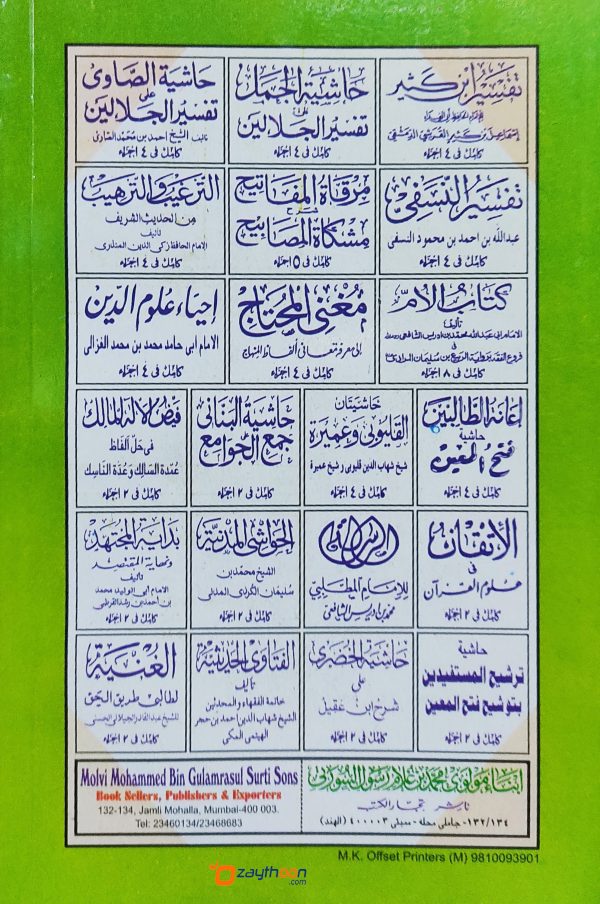 تفسير ابن كثير
للإمام الحافظ أبي الفداء
إسماعيل بن كثير القرشي الدمشقي
كامل في ٤ اجزاء
حاشية الجمل
على
تفسير الجلالين
كامل في ٤ اجزاء
حاشية الصاوي
على
تفسير الجلالين
تأليف الشيخ احمد بن محمد الصاوي
كامل في ٤ اجزاء
تفسير النسفي
عبدالله بن احمد بن محمود النسفي
كامل في ٤ اجزاء
مرقاة المفاتيح
شرح
مشكاة المصابيح
كامل في ٥ اجزاء
الترغيب والترهيب
من الحديث الشريف
تأليف
الامام الحافظ زكي الدين المنذري
كامل في ٤ اجزاء
كتاب الأم
تأليف
الامام ابي عبدالله محمد بن ادريس الشافعي
في
فروع الفقه برواية الربيع بن سليمان المرادي
كامل في ٨ اجزاء
مغني المحتاج
إلى معرفة معاني ألفاظ المنهاج
كامل في ٤ اجزاء
إحياء علوم الدين
الامام ابي حامد محمد بن محمد الغزالي
كامل في ٤ اجزاء
إعانة الطالبين
حاشية
فتح المعين
كامل في ٤ اجزاء
حاشيتان
القليوبي وعميرة
شيخ شهاب الدين قليوبي وشيخ عميرة
كامل في ٤ اجزاء
حاشية البناني
جمع الجوامع
كامل في ٢ اجزاء
فيض الاله المالك
في حل الفاظ
عمدة السالك وعدة الناسك
كامل في ٢ اجزاء
الإتقان
في
علوم القرآن
كامل في ٢ اجزاء
الرسالة
للإمام المطلبي
محمد بن إدريس الشافعي
الحواشي المدنية
الشيخ محمد بن
سليمان الكردي المدني
كامل في ٢ اجزاء
بداية المجتهد
ونهاية المقتصد
تأليف
الامام أبي الوليد محمد
بن احمد بن رشد القرطبي
كامل في ٢ اجزاء
حاشية
ترشيح المستفيدين
بتوشيح فتح المعين
كامل في ٢ اجزاء
حاشية الخضري
على
شرح ابن عقيل
كامل في ٢ اجزاء
الفتاوى الحديثية
تأليف
خاتمة الفقهاء والمحدثين
الشيخ شهاب الدين احمد بن حجر
الهيتمي المكي
الغنية
لطالبي طريق الحق
للشيخ عبد القادر الجيلاني الحسني
كامل في ٢ اجزاء
Molvi Mohammed Bin Gulamrasul Surti Sons
Book Sellers, Publishers & Exporters
132-134, Jamli Mohalla, Mumbai-400 003.
Tel: 23460134/23468683
ابناء مولوي محمد بن غلام رسول السورتي
ناشر تجار الكتب
١٣٢/١٣٤- جاملي محله - ممبئي ٤٠٠٠٠٣ (الهند)
M.K. Offset Printers (M) 9810093901
zaythoon
.com